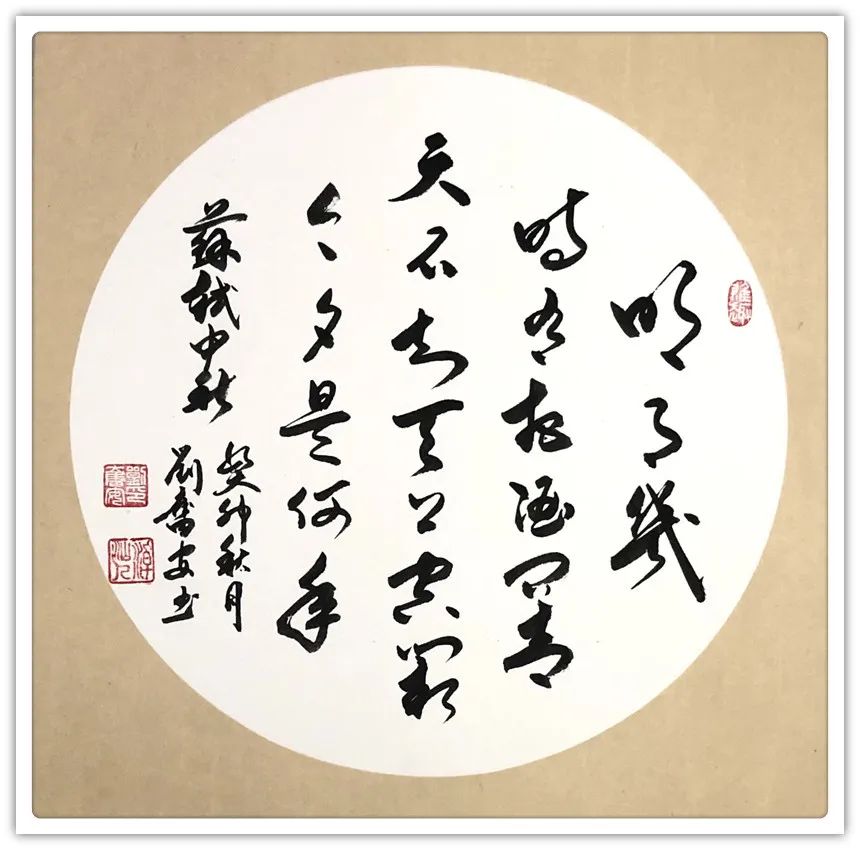 明月幾
時有把酒問青
天不知天上宫闕
今夕是何年
蘇軾中秋
癸卯秋月
劉奮安书